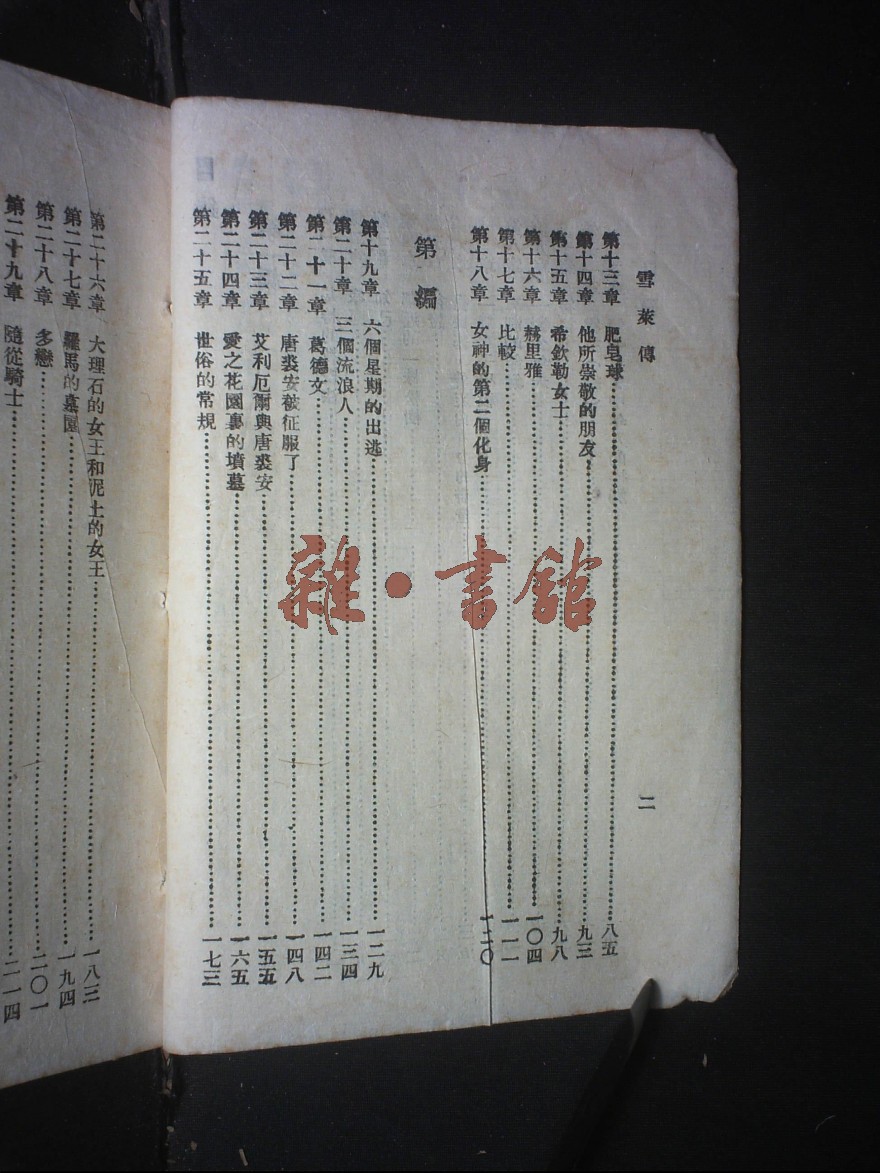 雪萊傳
二
第十三章 肥皂球 八五
第十四章 他所崇敬的朋友 九三
第十五章 希欽勒女士 九八
第十六章 赫里雅 一〇四
第十七章 比較 一一一
第十八章 女神的第二個化身 一二〇
第 編
第十九章 六個星期的出逃 一二九
第二十章 三個流浪人 一三四
第二十一章 葛德文 一四二
第二十二章 唐裘安被征服了 一四八
第二十三章 艾利厄爾與唐裘安 一五五
第二十四章 愛之花園裏的墳墓 一六五
第二十五章 世俗的常規 一七三
第二十六章 大理石的女王和泥土的女王 一八三
第二十七章 羅馬的墓園 一九四
第二十八章 多戀 二〇一
第二十九章 隨從騎士 二一四
雜·書館